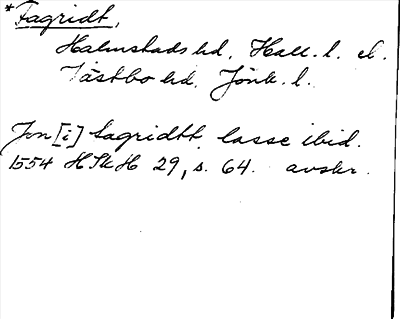 *Fagridt,
Halmstads hd, Hall. l. el.
Västbo hd, Jönk. l.
Jon [i] Fagridtt, lasse ibid.
1554 HSkH 29, s. 64. avskr.